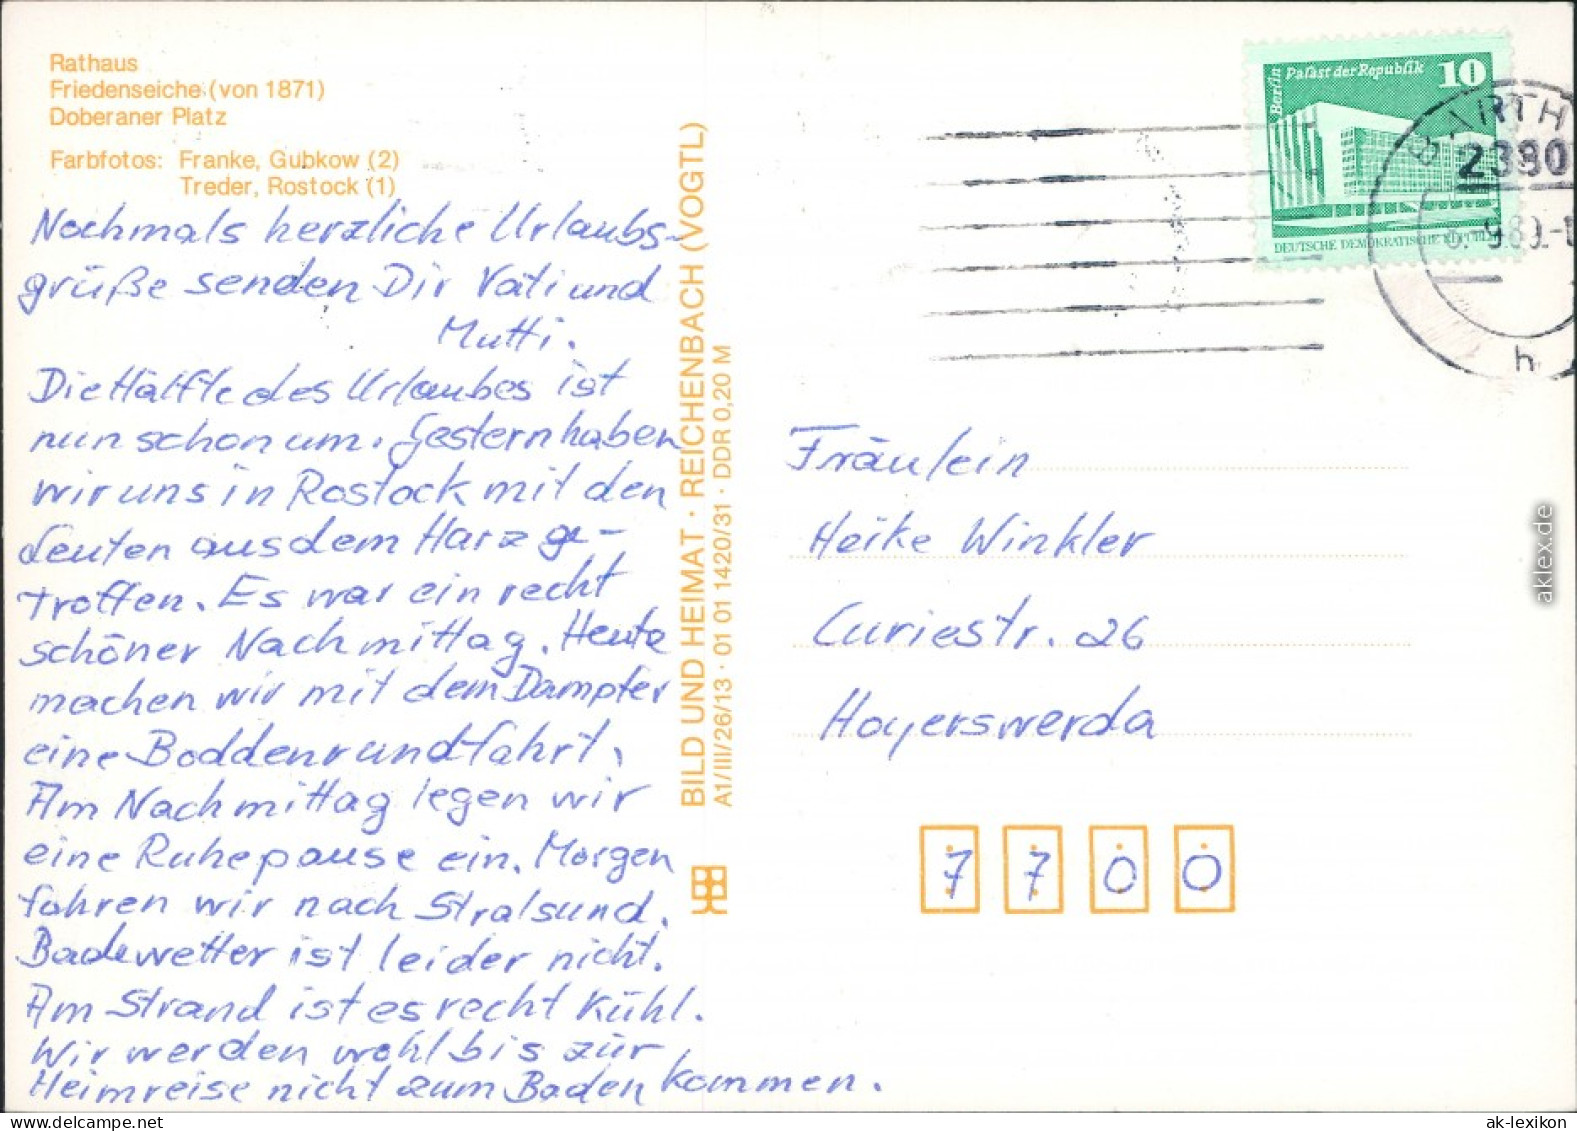 Rathaus
Friedenseiche (von 1871)
Doberaner Platz
Farbfotos: Franke, Gubkow (2)
Treder, Rostock (1)
Nochmals herzliche Urlaubs-
grüße senden Dir Vati und
Mutti.
Die Hälfte des Urlaubes ist
nun schon um. Gestern haben
wir uns in Rostock mit den
Leuten aus dem Harz ge-
troffen. Es war ein recht
schöner Nachmittag. Heute
machen wir mit dem Dampfer
eine Boddenrundfahrt.
Am Nachmittag legen wir
eine Ruhepause ein. Morgen
fahren wir nach Stralsund.
Badewetter ist leider nicht.
Am Strand ist es recht kühl.
Wir werden wohl bis zur
Heimreise nicht zum Baden kommen.
BILD UND HEIMAT · REICHENBACH (VOGTL)
A1/III/26/13 · 01 01 1420/31 · DDR 0,20 M
Berlin
Palast der Republik 10
DEUTSCHE DEMOKRATISCHE REPUBLIK
BARTH
2380
h
Fräulein
Heike Winkler
Curiestr. 26
Hoyerswerda
7 7 0 0
aklex.de
ak-lexikon